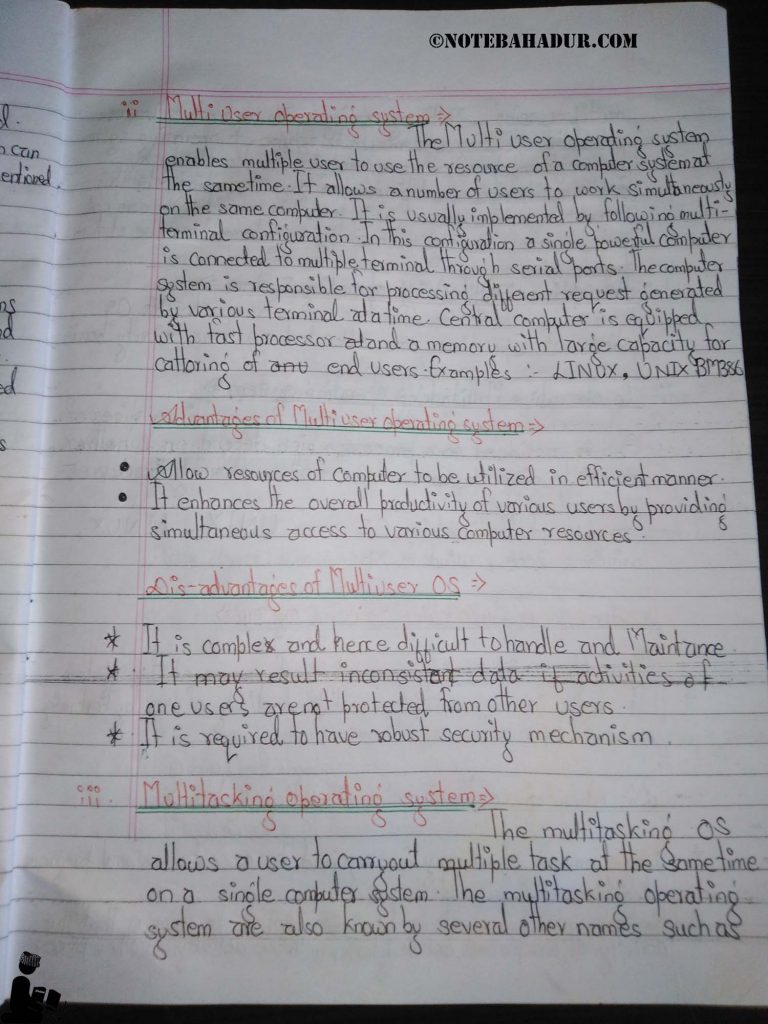 ©NOTEBAHADUR.COM
l.
can
entioned.
ns
d
ed
s
ii Multi user operating system ⇒
The Multi user operating system
enables multiple user to use the resource of a computer system at
the sametime. It allows a number of users to work simultaneously
on the same computer. It is usually implemented by following multi-
terminal configuration. In this configuration a single powerful computer
is connected to multiple terminal through serial ports. The computer
system is responsible for processing different request generated
by various terminal at a time. Central computer is equipped
with fast processor and a memory with large capacity for
cattoring of end users. Examples :- LINUX, UNIX BM386
Advantages of Multi user operating system ⇒
• Allow resources of computer to be utilized in efficient manner.
• It enhances the overall productivity of various users by providing
simultaneous access to various computer resources.
Dis-advantages of Multiuser OS ⇒
* It is complex and hence difficult to handle and Maintance.
* It may result inconsistant data if activities of
one users are not protected from other users.
* It is required to have robust security mechanism.
iii. Multitasking operating system ⇒
The multitasking OS
allows a user to carryout multiple task at the sametime
on a single computer system. The multitasking operating
system are also known by several other names such as